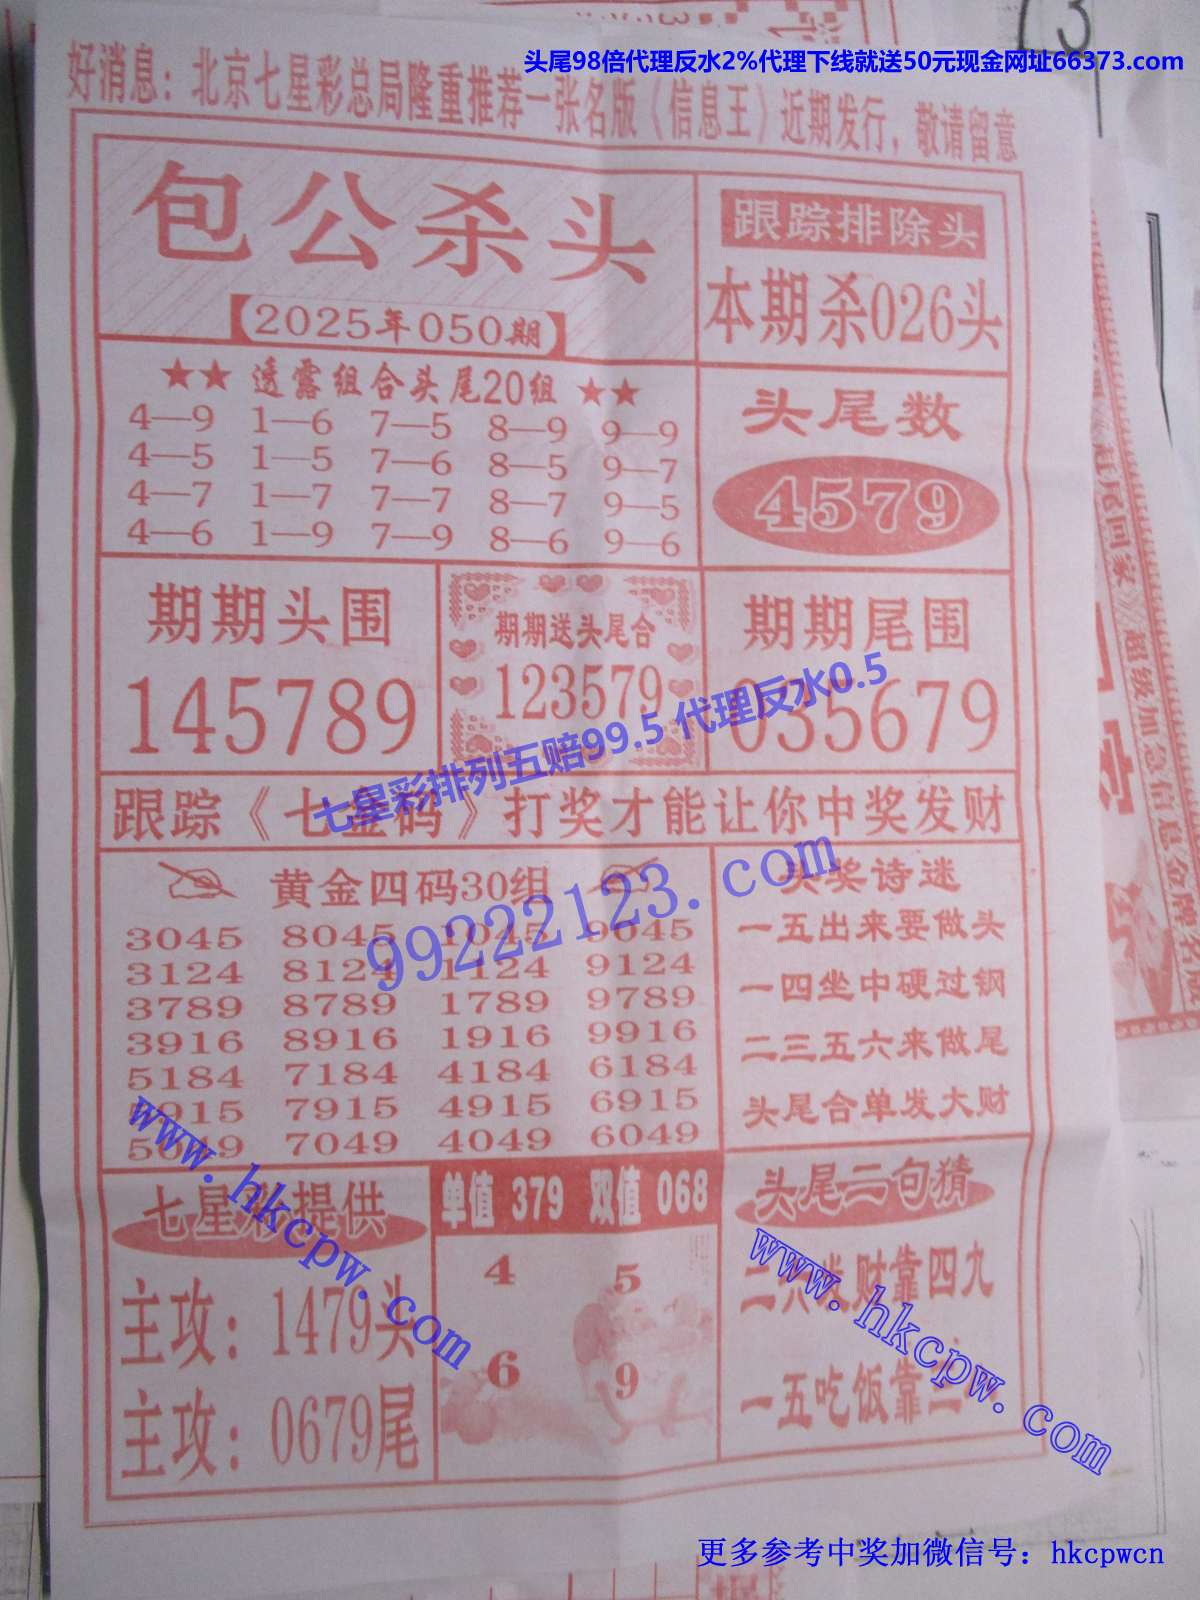 头尾98倍代理反水2%代理下线就送50元现金网址66373.com
好消息：北京七星彩总局隆重推荐一张名版《信息王》近期发行，敬请留意
包公杀头
【2025年050期】
跟踪排除头
本期杀026头
★★ 透露组合头尾20组 ★★
4—9 1—6 7—5 8—9 9—9
4—5 1—5 7—6 8—5 9—7
4—7 1—7 7—7 8—7 9—5
4—6 1—9 7—9 8—6 9—6
头尾数
4579
期期头围
145789
期期送头尾合
123579
期期尾围
035679
七星彩排列五赔99.5 代理反水0.5
跟踪《七金码》打奖才能让你中奖发财
黄金四码30组
3045 8045 1045 9045
3124 8124 1124 9124
3789 8789 1789 9789
3916 8916 1916 9916
5184 7184 4184 6184
5915 7915 4915 6915
5049 7049 4049 6049
99222123.com
头奖诗迷
一五出来要做头
一四坐中硬过钢
二三五六来做尾
头尾合单发大财
七星彩提供
主攻：1479头
主攻：0679尾
www.hkcpw.com
单值 379 双值 068
4 5
6 9
头尾二句猜
二六发财靠四九
一五吃饭靠
www.hkcpw.com
赶尾回家
《超级加急信息金牌名版
更多参考中奖加微信号：hkcpwcn